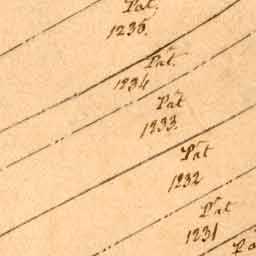 Pat.
1235.
Pat.
1234
Pat
1233.
Pat
1232
Pat
1231